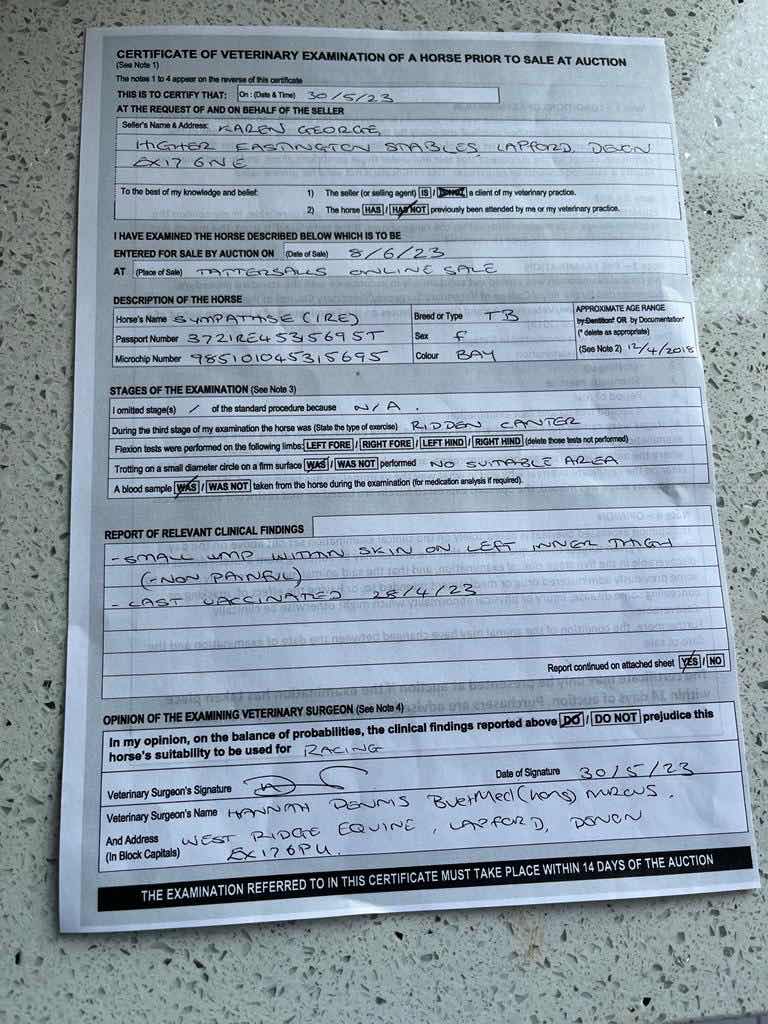 CERTIFICATE OF VETERINARY EXAMINATION OF A HORSE PRIOR TO SALE AT AUCTION
(See Note 1)
The notes 1 to 4 appear on the reverse of this certificate
THIS IS TO CERTIFY THAT: On: (Date & Time) 30/5/23
AT THE REQUEST OF AND ON BEHALF OF THE SELLER
Seller's Name & Address: KAREN GEORGE,
HIGHER EASTINGTON STABLES, LAPFORD, DEVON
EX17 6NE
To the best of my knowledge and belief: 1) The seller (or selling agent) IS / IS NOT a client of my veterinary practice.
2) The horse HAS / HAS NOT previously been attended by me or my veterinary practice.
I HAVE EXAMINED THE HORSE DESCRIBED BELOW WHICH IS TO BE
ENTERED FOR SALE BY AUCTION ON (Date of Sale) 8/6/23
AT (Place of Sale) TATTERSALLS ONLINE SALE
DESCRIPTION OF THE HORSE
Horse's Name SYMPATHISE (IRE) Breed or Type TB APPROXIMATE AGE RANGE
by Dentition* OR by Documentation*
Passport Number 372IRE45315695T Sex f (* delete as appropriate)
Microchip Number 985101045315695 Colour BAY (See Note 2) 12/4/2018
STAGES OF THE EXAMINATION (See Note 3)
I omitted stage(s) / of the standard procedure because N/A.
During the third stage of my examination the horse was (State the type of exercise) RIDDEN CANTER
Flexion tests were performed on the following limbs: LEFT FORE / RIGHT FORE / LEFT HIND / RIGHT HIND (delete those tests not performed)
Trotting on a small diameter circle on a firm surface WAS / WAS NOT performed NO SUITABLE AREA
A blood sample WAS / WAS NOT taken from the horse during the examination (for medication analysis if required).
REPORT OF RELEVANT CLINICAL FINDINGS
- SMALL LUMP WITHIN SKIN ON LEFT INNER THIGH
(- NON PAINFUL)
- LAST VACCINATED 28/4/23
Report continued on attached sheet YES / NO
OPINION OF THE EXAMINING VETERINARY SURGEON (See Note 4)
In my opinion, on the balance of probabilities, the clinical findings reported above DO / DO NOT prejudice this
horse's suitability to be used for RACING
Veterinary Surgeon's Signature Date of Signature 30/5/23
Veterinary Surgeon's Name HANNAH DENNIS BVetMed(hons) MRCVS.
And Address WEST RIDGE EQUINE, LAPFORD, DEVON
(In Block Capitals) EX17 6PU.
THE EXAMINATION REFERRED TO IN THIS CERTIFICATE MUST TAKE PLACE WITHIN 14 DAYS OF THE AUCTION